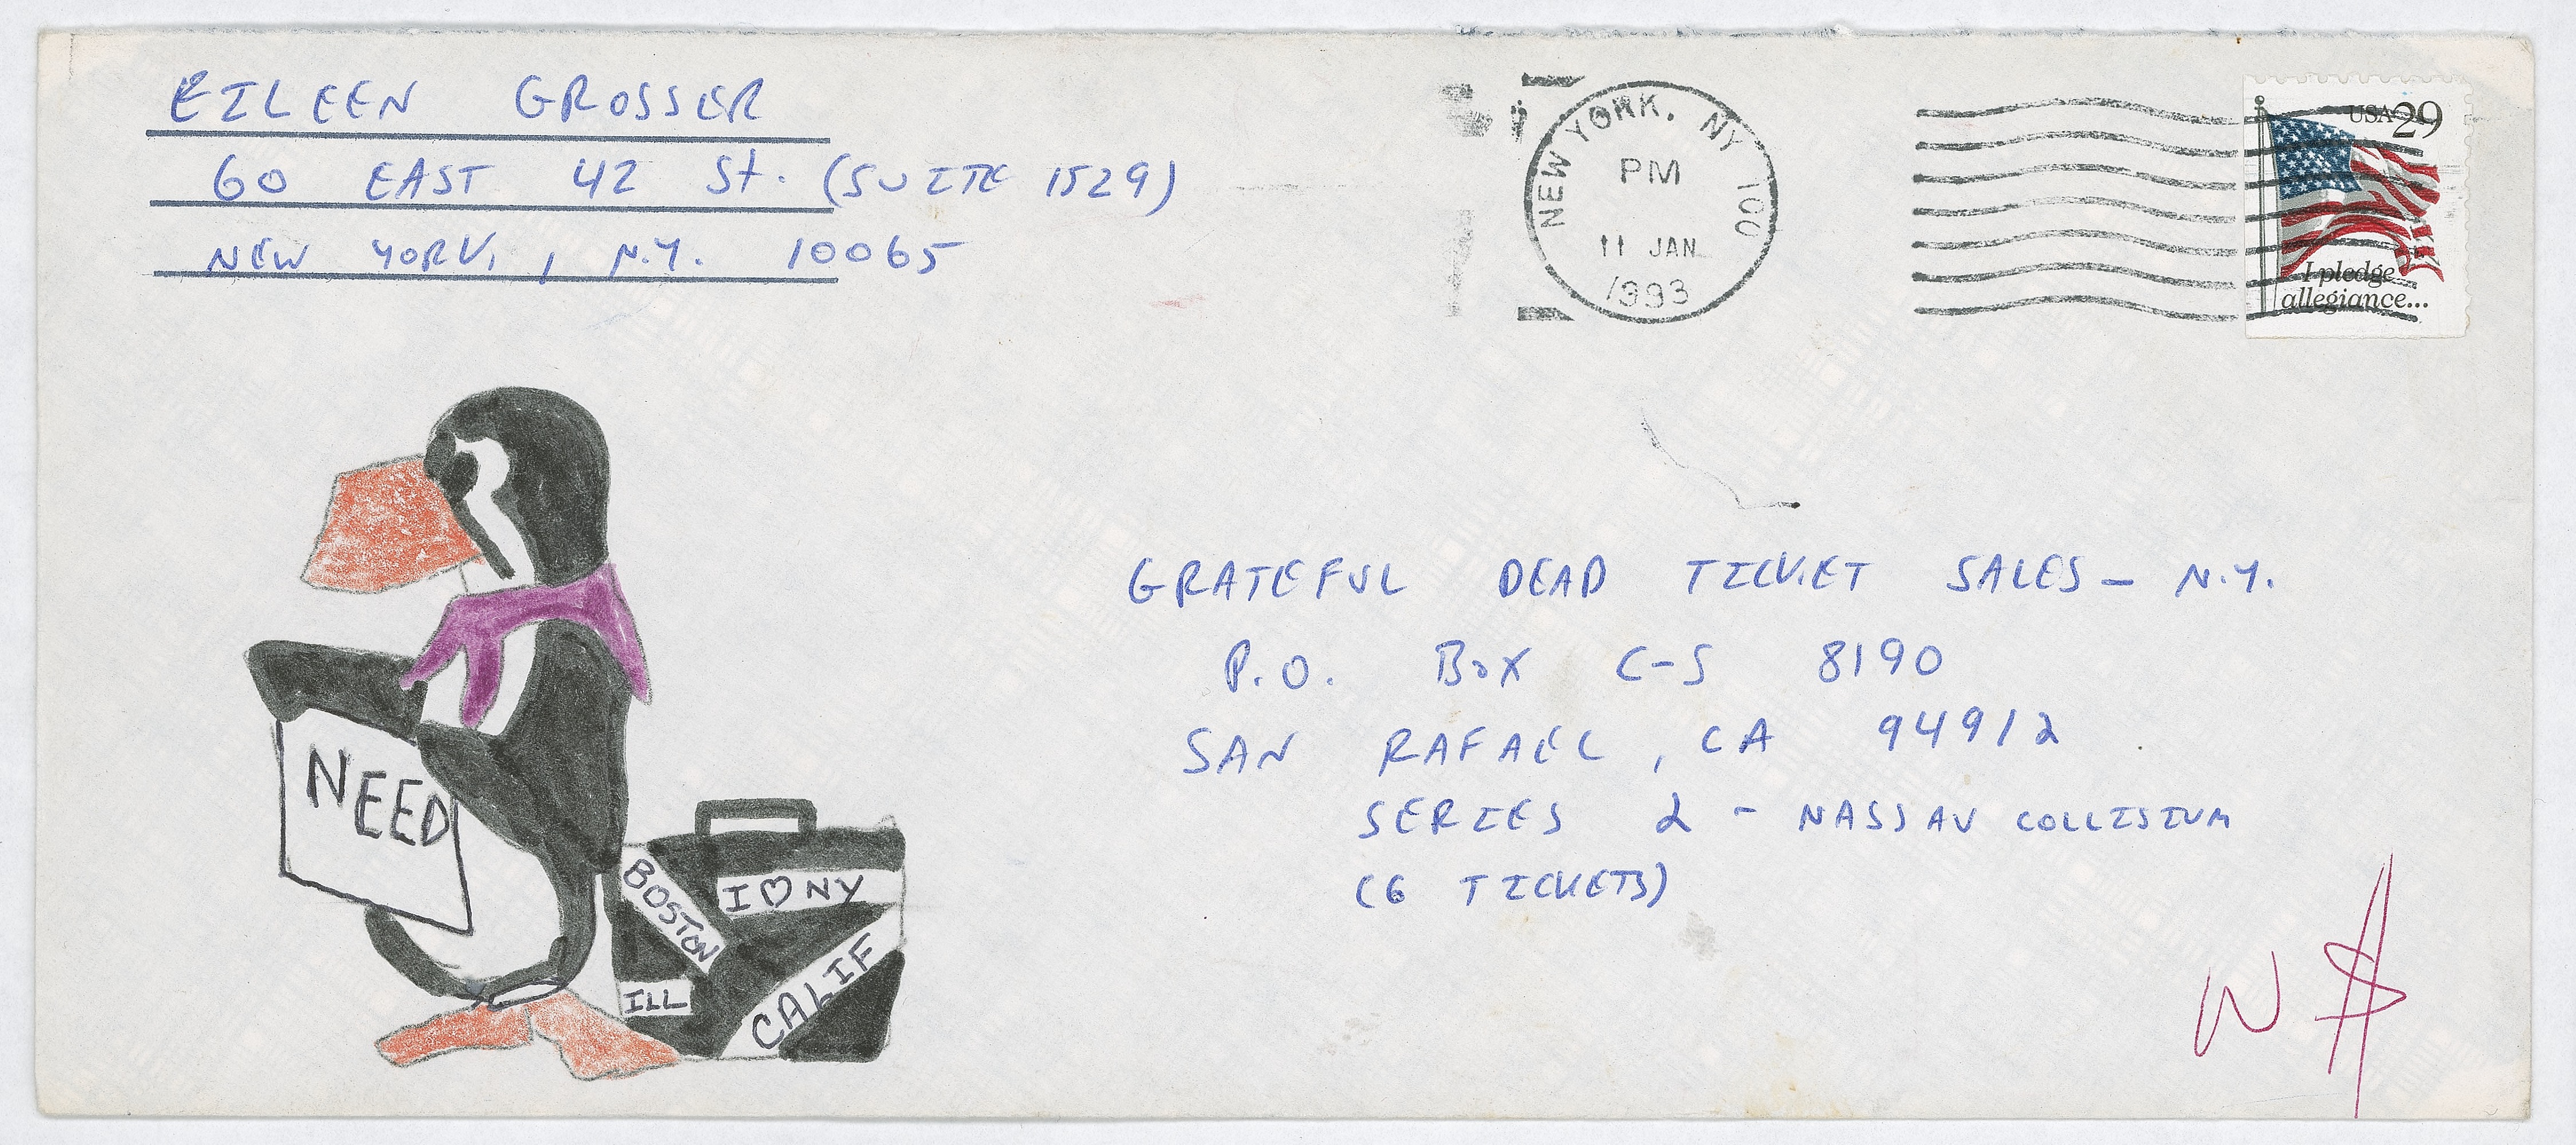 EILEEN GROSSER
60 EAST 42 St. (SUITE 1529)
NEW YORK, N.Y. 10065
NEW YORK, NY 100
PM
11 JAN
1993
USA 29
I pledge
allegiance...
GRATEFUL DEAD TICKET SALES - N.Y.
P.O. BOX C-S 8190
SAN RAFAEL, CA 94912
SERIES 2 - NASSAU COLLISIUM
(6 TICKETS)
NEED
BOSTON
I ♡ NY
ILL
CALIF
W $